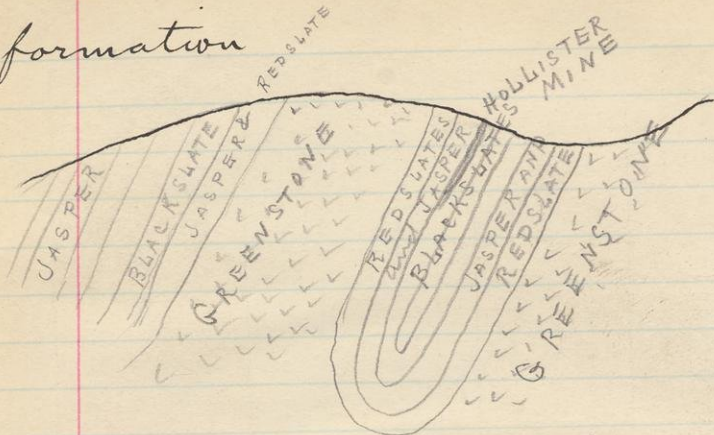 formation
JASPER
BLACKSLATE
JASPER &
REDSLATE
GREENSTONE
REDSLATES
and JASPER
BLACKSLATES
HOLLISTER
MINE
JASPER AND
REDSLATE
GREENSTONE